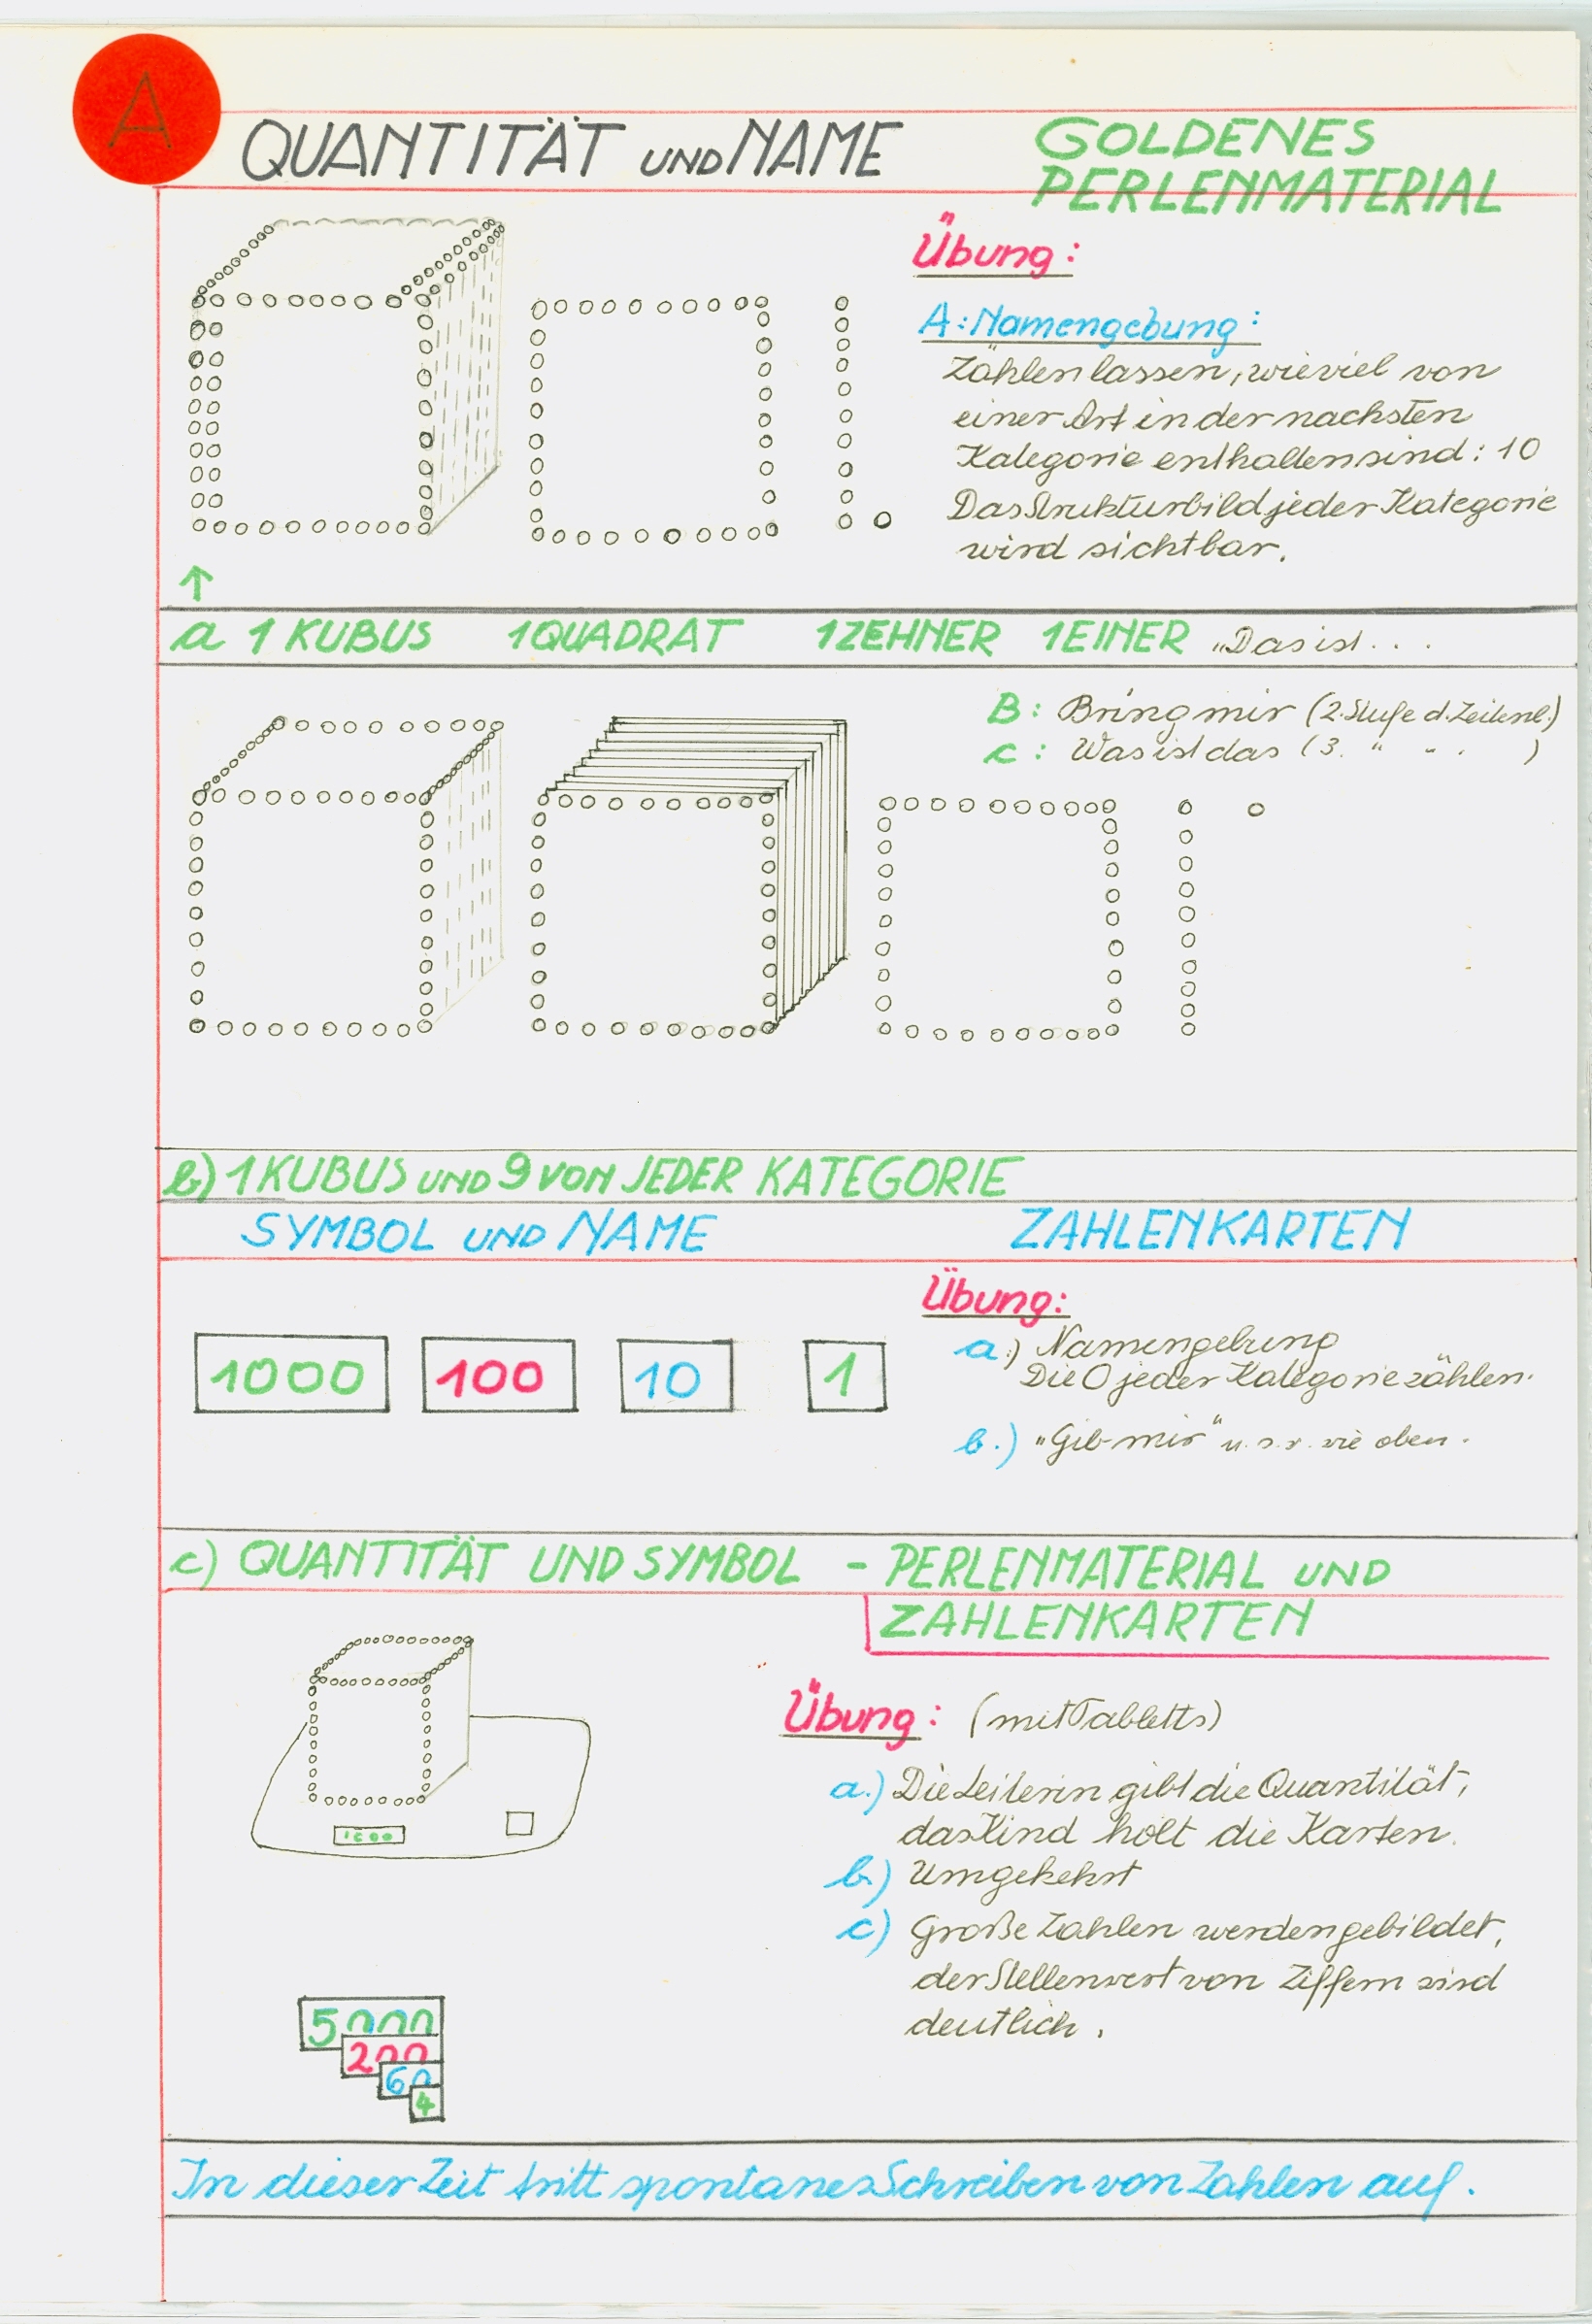 A
QUANTITÄT UND NAME
GOLDENES
PERLENMATERIAL
Übung:
A: Namengebung:
Zählen lassen, wieviel von
einer Art in der nächsten
Kategorie enthalten sind: 10
Das Strukturbild jeder Kategorie
wird sichtbar.
↑
a 1 KUBUS 1 QUADRAT 1 ZEHNER 1 EINER „Das ist...
B: Bring mir (2. Stufe d.
C: Was ist das (3. " " . )
b) 1 KUBUS UND 9 VON JEDER KATEGORIE
SYMBOL UND NAME ZAHLENKARTEN
Übung:
1000 100 10 1
a.) Namengebung
Die 0 jeder Kategorie zählen.
b.) „Gib mir" u.s.w. wie oben.
c) QUANTITÄT UND SYMBOL - PERLENMATERIAL UND
ZAHLENKARTEN
Übung: (mit Tabletts)
a.) Die Leiterin gibt die Quantität,
das Kind holt die Karten.
b.) Umgekehrt
c) Große Zahlen werden gebildet,
der Stellenwert von Ziffern wird
deutlich.
1000
5000
200
60
4
In dieser Zeit tritt spontanes Schreiben von Zahlen auf.